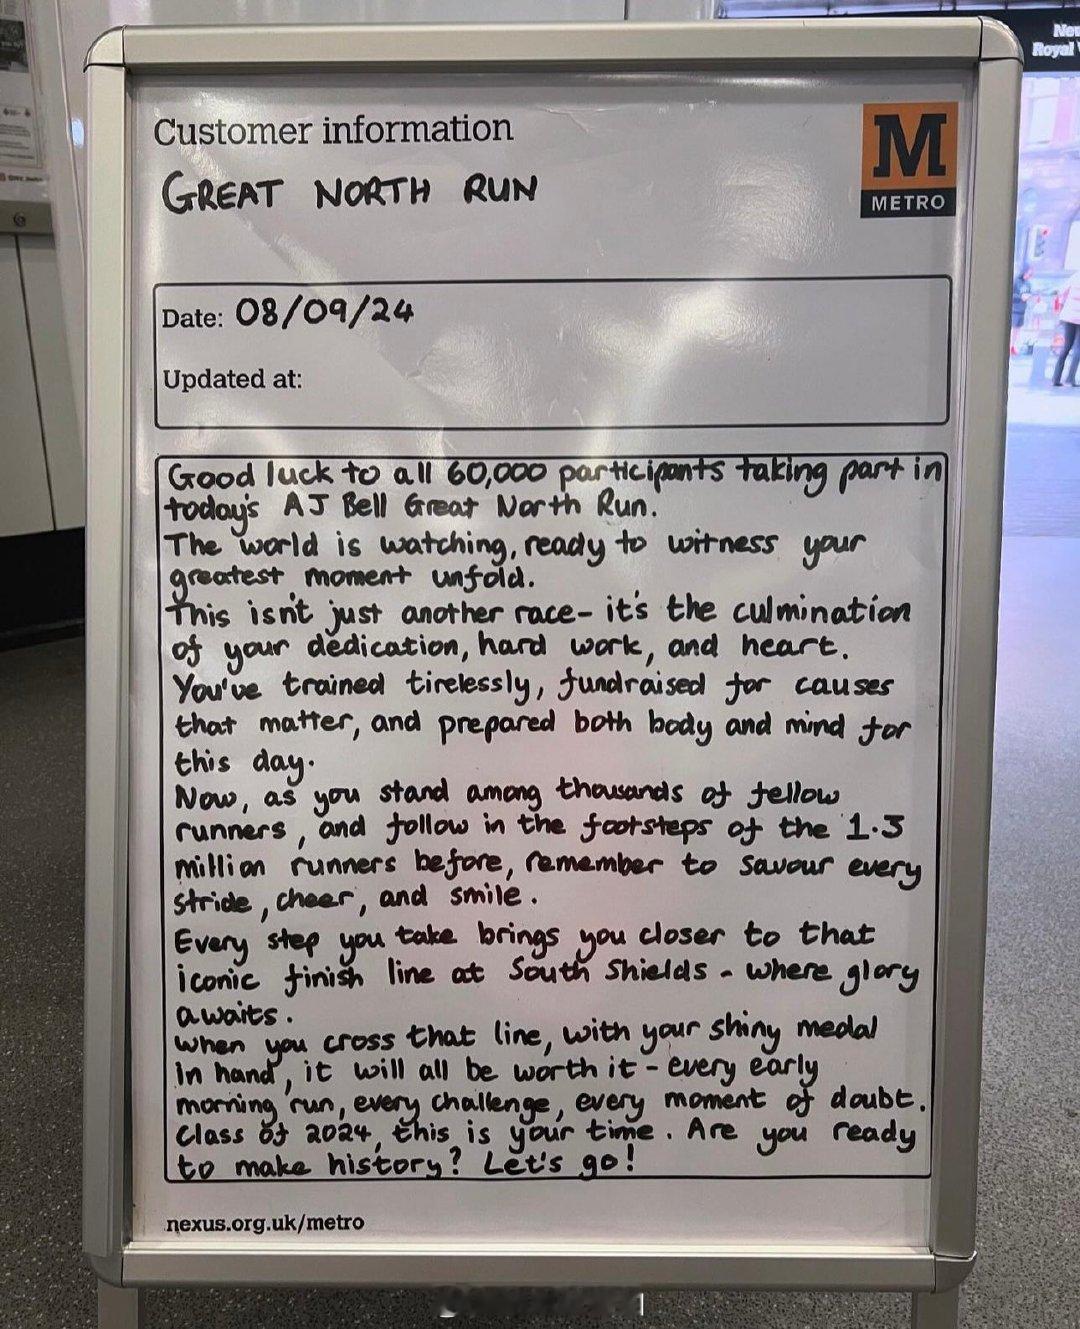 Customer information
GREAT NORTH RUN
M
METRO
Date: 08/09/24
Updated at:
Good luck to all 60,000 participants taking part in
today's AJ Bell Great North Run.
The world is watching, ready to witness your
greatest moment unfold.
This isn't just another race- it's the culmination
of your dedication, hard work, and heart.
You've trained tirelessly, fundraised for causes
that matter, and prepared both body and mind for
this day.
Now, as you stand among thousands of fellow
runners, and follow in the footsteps of the 1.3
million runners before, remember to savour every
stride, cheer, and smile.
Every step you take brings you closer to that
iconic finish line at South Shields - where glory
awaits.
When you cross that line, with your shiny medal
in hand, it will all be worth it - every early
morning run, every challenge, every moment of doubt.
Class of 2024, this is your time. Are you ready
to make history? Let's go!
nexus.org.uk/metro
Royal